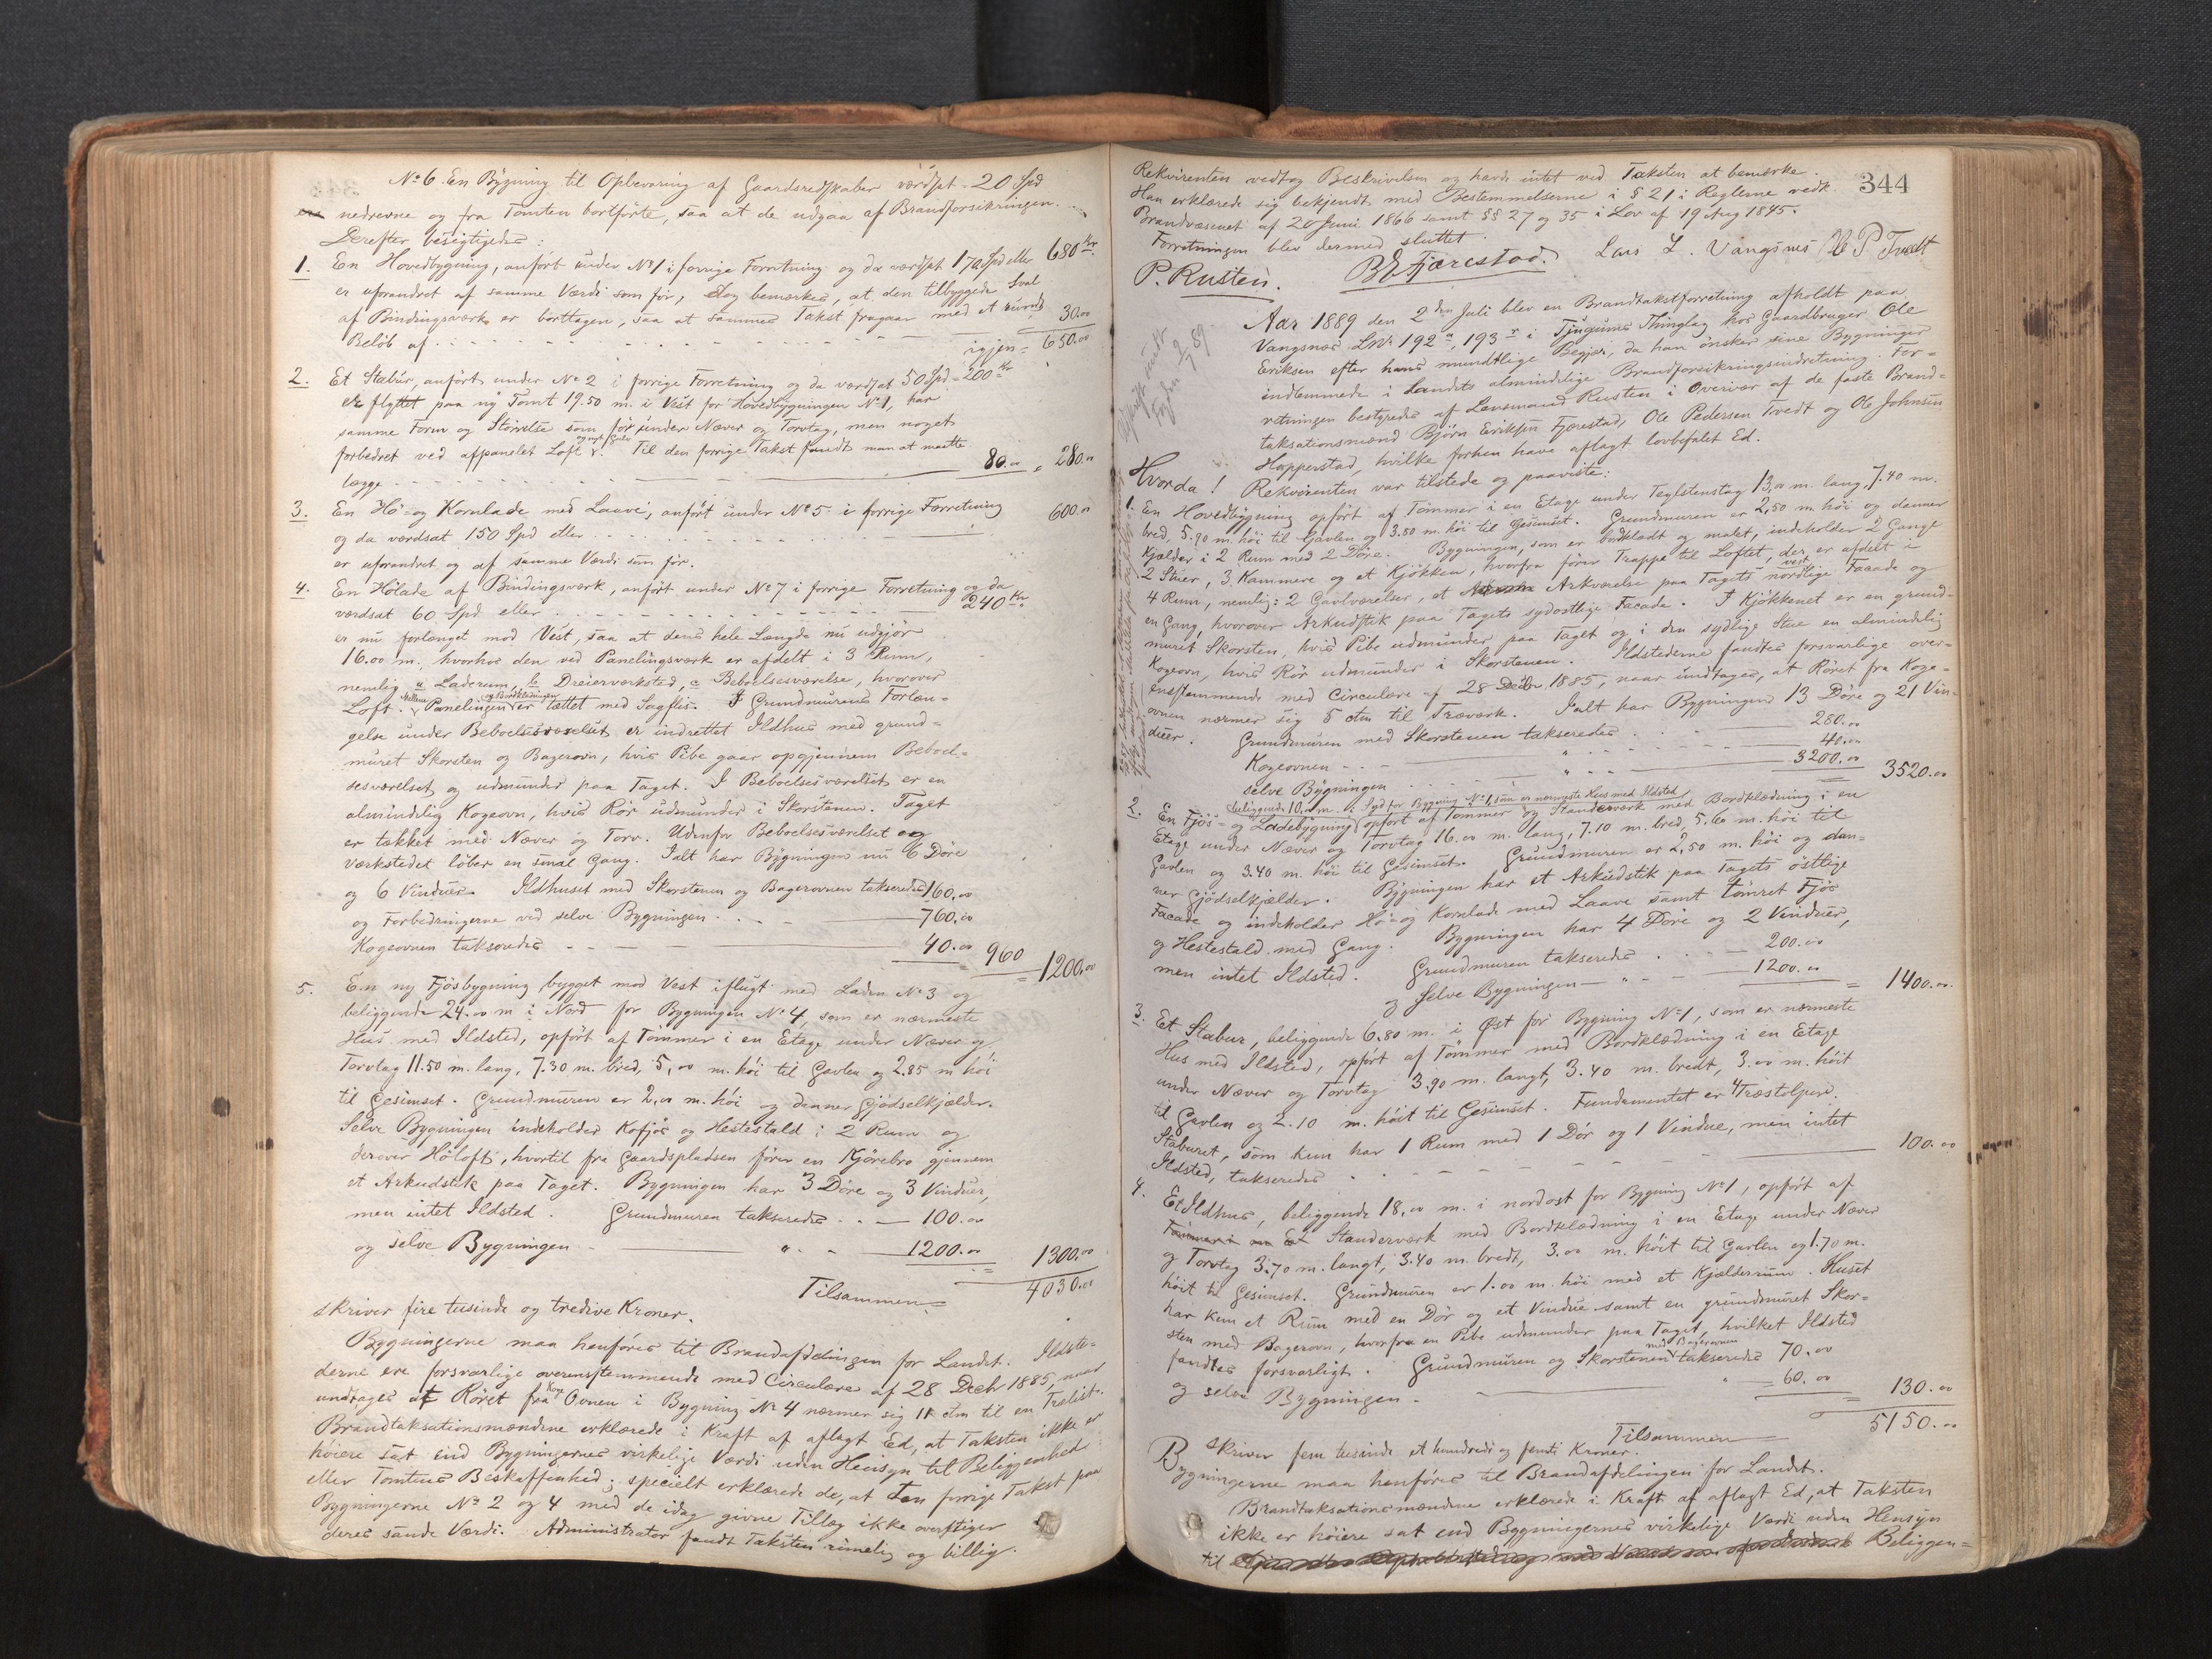 No 6. En Bygning til Opbevaring af Gaardsredskaber værdsat 20 Spd
ere nedrevne og fra Tomten bortførte, saa at de udgaa af Brandforsikringen.
Derefter besigtigedes:
1. En Hovedbygning, anført under No 1 i forrige Forretning og da værdsat 170 Spd eller 680 Kr.
er uforandret af samme Værdi som før, dog bemærkes, at den tilbyggede Sval
af Bindingsværk er borttagen, saa at sammes Takst fragaar med et rundt
Beløb af 30.00
igjen = 650.00
2. Et Stabur, anført under No 2 i forrige Forretning og da værdsat 50 Spd = 200 Kr
er flyttet paa ny Tomt 19.50 m. i Vest for Hovedbygningen No 1, har
samme Form og Størrelse som før under Næver og Torvtag, men noget
forbedret ved afpanelet Loft og nyt Gulv. Til den forrige Takst fandt man at maatte
lægge 80.00 = 280.00
3. En Hø- og Kornlade med Laave, anført under No 5 i forrige Forretning
og da værdsat 150 Spd eller 600.00
er uforandret og af samme Værdi som før.
4. En Hølade af Bindingsværk, anført under No 7 i forrige Forretning og da
værdsat 60 Spd eller 240 Kr.
er nu forlænget mod Vest, saa at dens hele Længde nu udgjør
16.00 m. hvorhos den ved Panelingsværk er afdelt i 3 Rum,
nemlig a Laderum, b Dreierværksted, c Beboelsesværelse, hvorover
Loft. Mellem Panelingen og Bordklædningen er tættet med Sagflis. I Grundmurens Forlæn-
gelse under Beboelsesværelset er indrettet Ildhus med grund-
muret Skorsten og Bagerovn, hvis Pibe gaar opgjennem Beboel-
sesværelset og udmunder paa Taget. I Beboelsesværelset er en
almindelig Kogeovn, hvis Rør udmunder i Skorstenen. Taget
er tækket med Næver og Torv. Udenfor Beboelsesværelset og
Værkstedet løber en smal Gang. Ialt har Bygningen nu 6 Døre
og 6 Vinduer. Ildhuset med Skorstenen og Bagerovnen takseredes 160.00
og Forbedringerne ved selve Bygningen 760.00
Kogeovnen takseredes 40.00 960 = 1200.00
5. En ny Fjøsbygning bygget mod Vest iflugt med Laden No 3 og
beliggende 24.00 m i Nord for Bygningen No 4, som er nærmeste
Hus med Ildsted, opført af Tømmer i en Etage under Næver og
Torvtag 11.50 m. lang, 7.30 m. bred, 5,00 m. høi til Gavlen og 2.85 m høi
til Gesimset. Grundmuren er 2,00 m. høi og danner Gjødselkjælder.
Selve Bygningen indeholder Kofjøs og Hestestald i 2 Rum og
derover Høloft, hvortil fra Gaardspladsen fører en Kjørebro gjennem
et Arkudstik paa Taget. Bygningen har 3 Døre og 3 Vinduer,
men intet Ildsted. Grundmuren takseredes 100.00
og selve Bygningen " 1200.00 = 1300.00
Tilsammen = 4030.00
skriver fire tusinde og tredive Kroner.
Bygningerne maa henføres til Brandafdelingen for Landet. Ildste-
derne ere forsvarlige overensstemmende med Circulære af 28 Decbr 1885, naar
undtages at Røret fra Koge Ovnen i Bygning No 4 nærmer sig 11 ctm til en Trælist.
Brandtaksationsmændene erklærede i Kraft af aflagt Ed, at Taksten ikke er
høiere sat end Bygningernes virkelige Værdi uden Hensyn til Beliggenhed
eller Tomtens Beskaffenhed; specielt erklærede de, at den forrige Takst paa
Bygningerne No 2 og 4 med de idag givne Tillæg ikke overstiger
deres sande Værdi. Administrator fandt Taksten rimelig og billig.
344
Rekvirenten vedtog Beskrivelsen og havde intet ved Taksten at bemærke.
Han erklærede sig bekjendt med Bestemmelserne i § 21 i Reglerne vedk.
Brandvæsenet af 20 Juni 1866 samt §§ 27 og 35 i Lov af 19 Aug 1845.
Forretningen blev dermed sluttet.
P. Rusten. BEFjærestad. Lars L. Vangsnes O P Tvedt
Aar 1889 den 2den Juli blev en Brandtakstforretning afholdt paa
Vangsnes LNr. 192a, 193 i Tjugums Thinglag hos Gaardbruger Ole
Eriksen efter hans mundtlige Begjær, da han ønsker sine Bygninger
indlemmede i Landets almindelige Brandforsikringsindretning. For-
retningen bestyredes af Lensmand Rusten i Overvær af de faste Brand-
taksationsmænd Bjørn Eriksen Fjærestad, Ole Pedersen Tvedt og Ole Johnsen
Hopperstad, hvilke forhen have aflagt lovbefalet Ed.
Hvorda! Rekvirenten var tilstede og paaviste:
1. En Hovedbygning opført af Tømmer i en Etage under Teglstenstag 13,00 m. lang, 7.40 m.
bred, 5.90 m. høi til Gavlen og 3.50 m. høi til Gesimset. Grundmuren er 2,50 m. høi og danner
Kjælder i 2 Rum med 2 Døre. Bygningen, som er bordklædt og malet, indeholder 2 Gange
2 Stuer, 3 Kammere og et Kjøkken, hvorfra fører Trappe til Loftet, der er afdelt i
4 Rum, nemlig: 2 Gavlværelser, et Arkværelse paa Tagets nordvestlige Facade og
en Gang, hvorover Arkudstik paa Tagets sydostlige Facade. I Kjøkkenet er en grund-
muret Skorsten, hvis Pibe udmunder paa Taget og i den sydlige Stue en almindelig
Kogeovn, hvis Rør udmunder i Skorstenen. Ildstederne fandtes forsvarlige over-
ensstemmende med Circulære af 28 Decbr 1885, naar undtages, at Røret fra Koge-
ovnen nærmer sig 5 ctm til Træværk. Ialt har Bygningen 13 Døre og 21 Vin-
duer. Grundmuren med Skorstenen takseredes 280.00
Kogeovnen " 40.00
selve Bygningen " 3200.00 3520.00
2. En Fjøs- og Ladebygning beliggende 10,00 m. i Syd for Bygning No 1, som er nærmeste Hus med Ildsted opført af Tømmer og Standerværk med Bordklædning i en
Etage under Næver og Torvtag 16.00 m. lang, 7.10 m. bred, 5.60 m. høi til
Gavlen og 3.40 m. høi til Gesimset. Grundmuren er 2,50 m. høi og dan-
ner Gjødselkjælder. Bygningen har et Arkudstik paa Tagets østlige
Facade og indeholder Hø- og Kornlade med Laave samt tømret Fjøs
og Hestestald med Gang. Bygningen har 4 Døre og 2 Vinduer,
men intet Ildsted. Grundmuren takseredes 200.00
og Selve Bygningen " 1200.00 = 1400.00
3. Et Stabur, beliggende 6.80 m. i Øst for Bygning No 1, som er nærmeste
Hus med Ildsted, opført af Tømmer med Bordklædning i en Etage
under Næver og Torvtag 3.90 m. langt, 3.40 m. bredt, 3.00 m. høit
til Gavlen og 2.10 m. høit til Gesimset. Fundamentet er 4 Træstolper.
Staburet, som kun har 1 Rum med 1 Dør og 1 Vindue, men intet
Ildsted, takseredes 100.00
4. Et Ildhus, beliggende 18,00 m. i nordost for Bygning No 1, opført af
Tømmer i en Et Standerværk med Bordklædning i en Etage under Næver
og Torvtag 3.70 m. langt, 3.40 m. bredt, 3.00 m. høit til Gavlen og 1.70 m.
høit til Gesimset. Grundmuren er 1.00 m. høi med et Kjælderrum. Huset
har kun et Rum med en Dør og et Vindue samt en grundmuret Skor-
sten med Bagerovn, hvorfra en Pibe udmunder paa Taget, hvilket Ildsted
fandtes forsvarligt. Grundmuren og Skorstenen med Bagerovnen takseredes 70.00
og selve Bygningen. " 60.00 = 130.00
Tilsammen = 5150.00
skriver fem tusinde et hundrede og femti Kroner.
Bygningerne maa henføres til Brandafdelingen for Landet.
Brandtaksationsmændene erklærede i Kraft af aflagt Ed, at Taksten
ikke er høiere sat end Bygningernes virkelige Værdi uden Hensyn
til Beliggen-